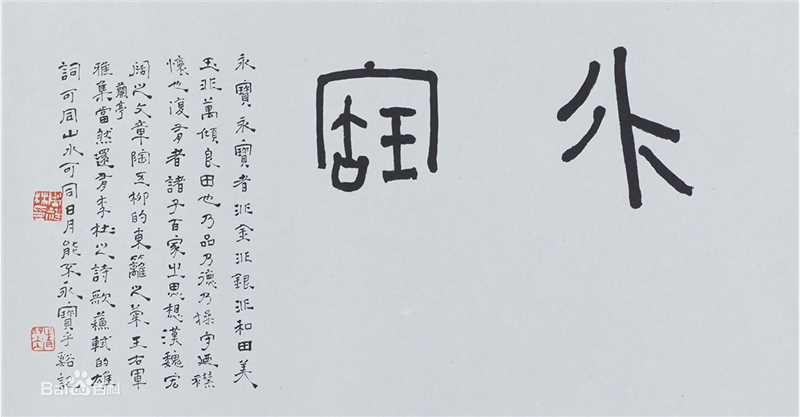 永寶
永寶永寶者非金非銀非和田美
玉非萬傾良田也乃品乃德乃操守廼襟
懷也復有者諸子百家之思想漢魏宏
闊之文章陶五柳的東籬之菊王右軍
蘭亭
雅集當然還有李杜之詩歌蘇軾的雄
詞可同山水可同日月能不永寶乎谿記
Bai百科